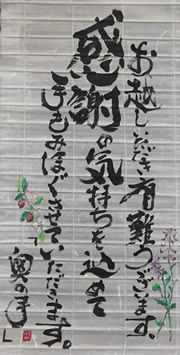 お越しいただき有難うございます。
感謝の気持ちを込めて
手もみほぐさせていただきます。
奥の手し